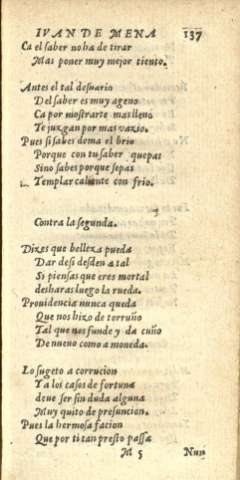 IVAN DE MENA 137
Ca el saber no ha de tirar
Mas poner muy mejor tiento.
Antes el tal desuario
Del saber es muy ageno
Ca por mostrarte mas lleno
Te juzgan por mas vazio.
Pues si sabes doma el brio
Porque con tu saber quepas
Sino sabes porque sepas
Templar caliente con frio.
Contra la segunda.
Dizes que belleza pueda
Dar de si desden a tal
Si piensas que eres mortal
desharas luego la rueda.
Prouidencia nunca queda
Que nos hizo de terruño
Tal que nos funde y da cuño
De nueuo como a moneda.
Lo sugeto a corrucion
Y a los casos de fortuna
deue ser sin duda alguna
Muy quito de presuncion.
Pues la hermosa facion
Que por ti tan presto passa
M 5 Nun